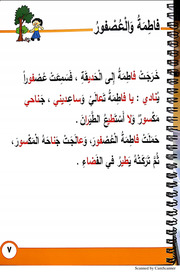 فاطِمَةُ وَالْعُصْفورُ
خَرَجَتْ فاطِمَةُ إِلى الْحَديقَةِ ، فَسَمِعَتْ عُصْفوراً
يُنادي : يا فاطِمَةُ تَعالَيْ وَساعِديني ، جَناحي
مَكْسورٌ وَلا أَسْتَطيعُ الطَّيَرانَ .
حَمَلَتْ فاطِمَةُ الْعُصْفورَ، وَعالَجَتْ جَناحَهُ الْمَكْسورَ،
ثُمَّ تَرَكَتْهُ يَطيرُ في الْفَضاءِ .
٧
Scanned by CamScanner